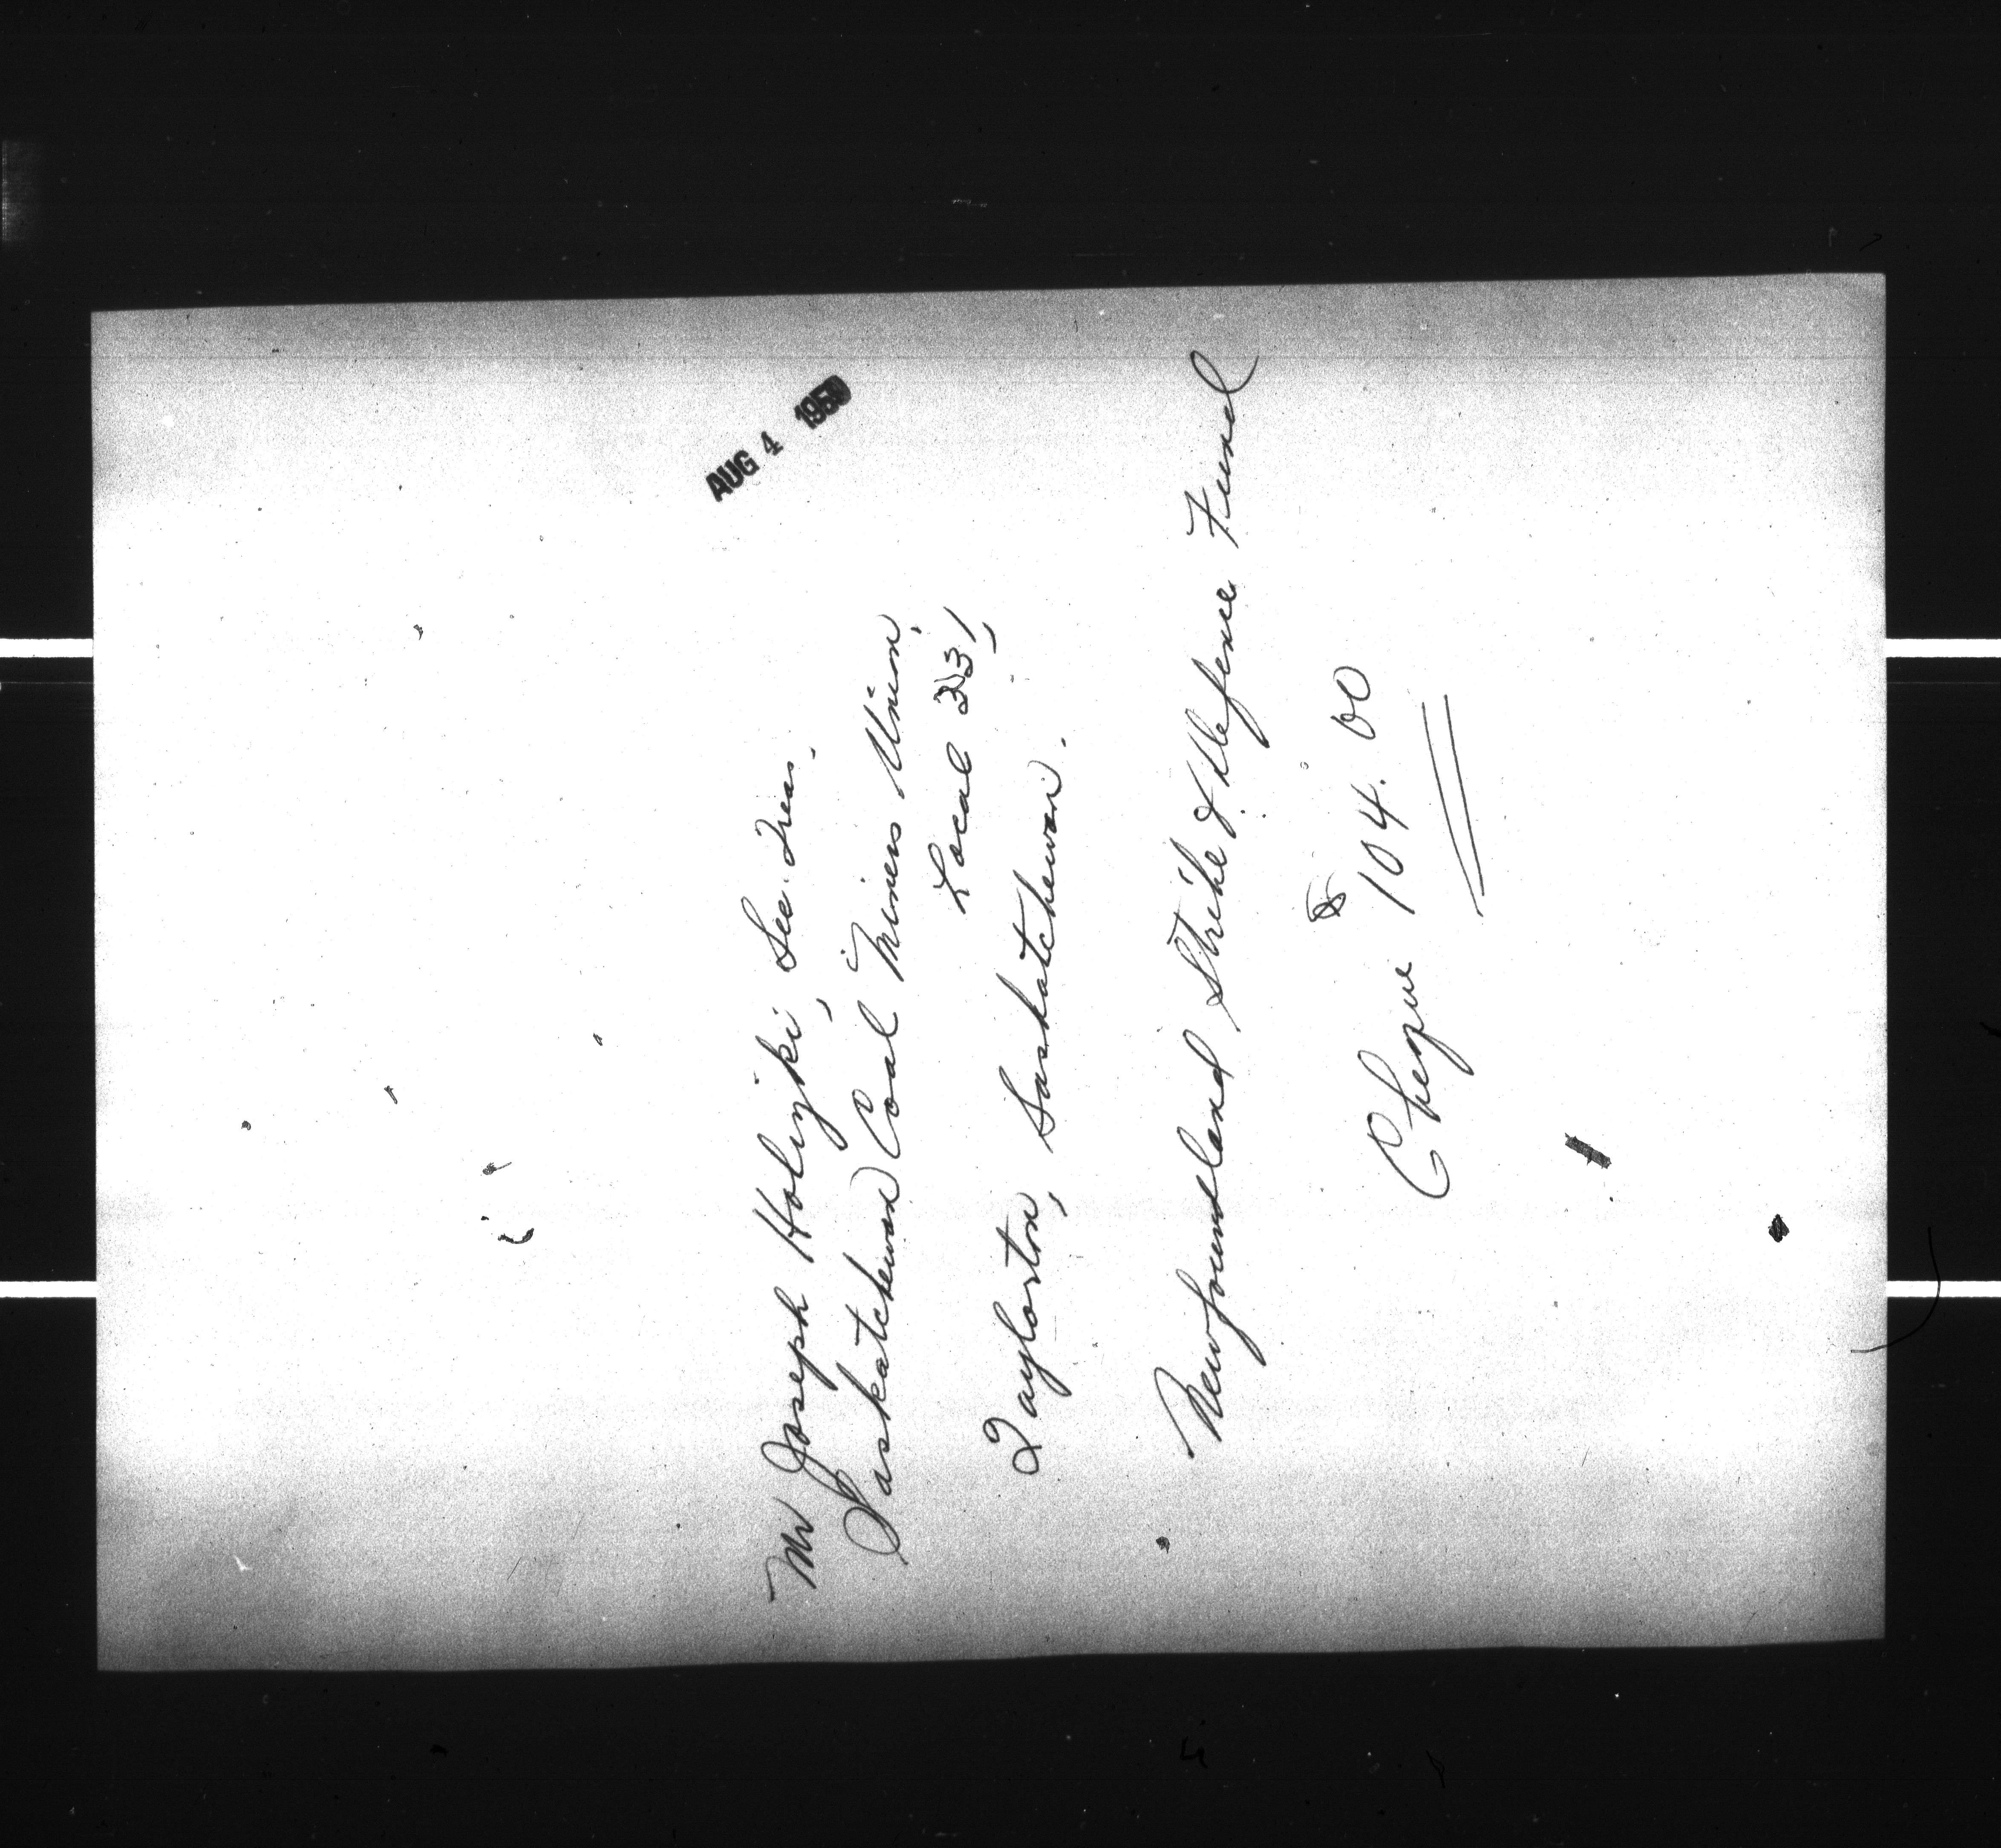 AUG 4 1959
Mr Joseph Holizki, Sec. Treas.
Saskatchewan Coal Miners Union,
Local
Taylorton, Saskatchewan.
Newfoundland Strike & Defence Fund
Cheque $ 104.00